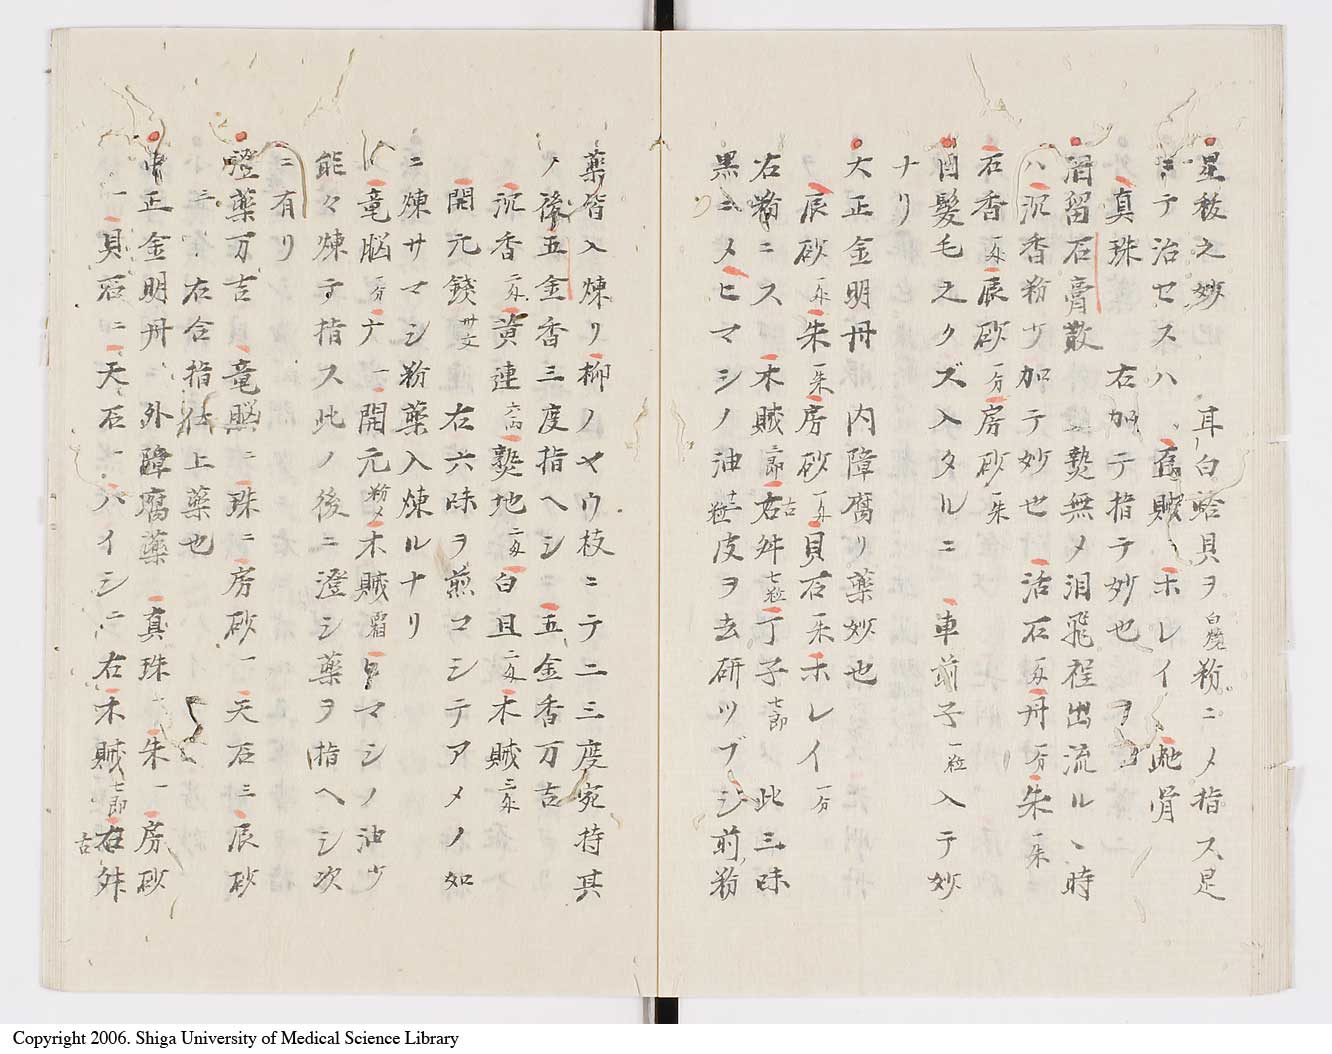 星祕之妙 耳白蛤貝ヲ白焼粉ニメ指ス是
ニテ治セスハ 烏賊ホレイ 地骨
真珠 右加テ指テ妙也
泪留石膏散 熱無メ泪飛程出流ル、時
ハ沉香粉少加テ妙也 活石二匁丹一分朱一朱
石香二匁辰砂一分房砂一朱
目髪毛之クズ入タルニ 車前子一粒入テ妙
ナリ
大正金明丹 内障腐リ薬妙也
辰砂一匁朱一朱房砂一匁貝石二朱ホレイ一分
右粉ニス 木賊二節古右舛七粒丁子七節 此三味
黒ニメヒマシノ油十二粒皮ヲ去研ツブシ前粉
薬皆入煉リ柳ノヤウ枝ニテ二三度宛持其
ノ後五金香三度指ヘシ 五金香万吉
沉香二匁黄連六匁熟地二匁白且二匁木賊三匁
開元錢廿文 右六味ヲ煎コシテアメノ如
ニ煉サマシ粉薬入煉ルナリ
竜脳一分 一開元粉メ木賊霜 マシノ油少
能々煉テ指ス此ノ後ニ澄シ薬ヲ指ヘシ次
ニ有リ
澄薬万吉 竜脳二珠二房砂一天石三辰砂
三 右合指仕上薬也
中正金明丹 外障腐薬 真珠一朱一房砂
一貝石二天石一ハイシ二右木賊七節古右舛
Copyright 2006. Shiga University of Medical Science Library